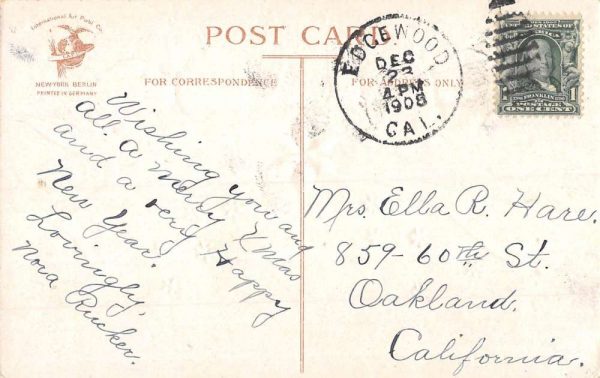 International Art Publ. Co.
NEW YORK BERLIN
PRINTED IN GERMANY
POST CARD
FOR CORRESPONDENCE
FOR ADDRESS ONLY
EDGEWOOD
DEC
4 PM
1908
CAL.
UNITED STATES OF AMERICA
FRANKLIN
1 POSTAGE 1
ONE CENT
Wishing you and
all a Merry Xmas
and a very Happy
New Year.
Lovingly,
Nora Rucker.
Mrs. Ella R. Hare.
859-60th St.
Oakland.
California.